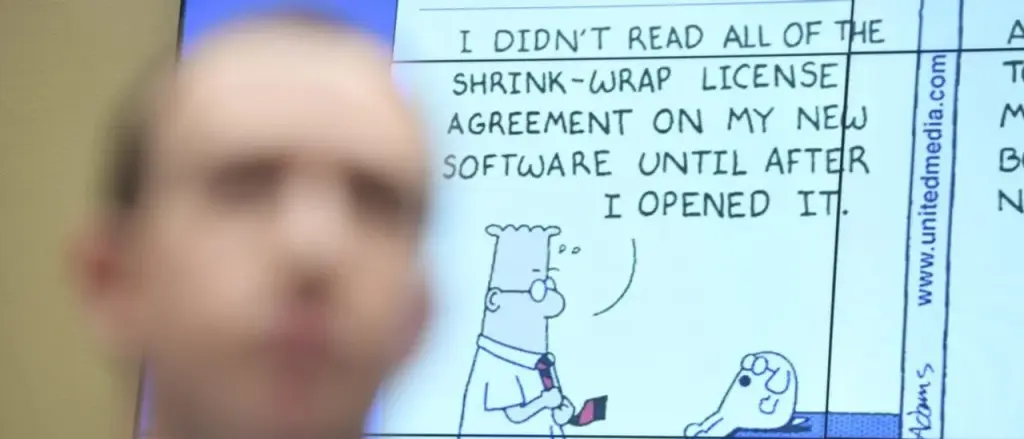 I DIDN'T READ ALL OF THE
SHRINK-WRAP LICENSE
AGREEMENT ON MY NEW
SOFTWARE UNTIL AFTER
I OPENED IT.
www.unitedmedia.com
Adams
A